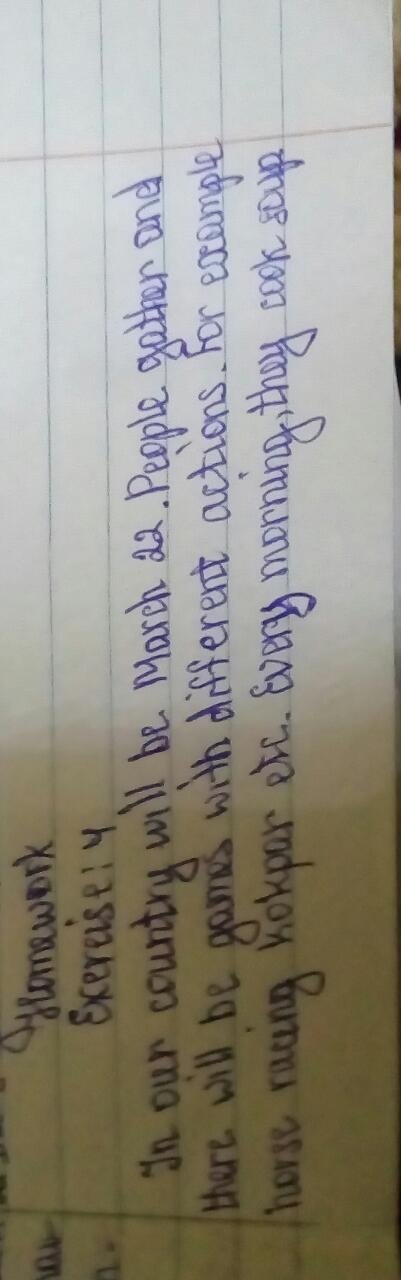 Homework
Exercise: 4
In our country will be March 22. People gather and
there will be games with different actions. For example
horse racing kokpar etc. Every morning, they cook soup